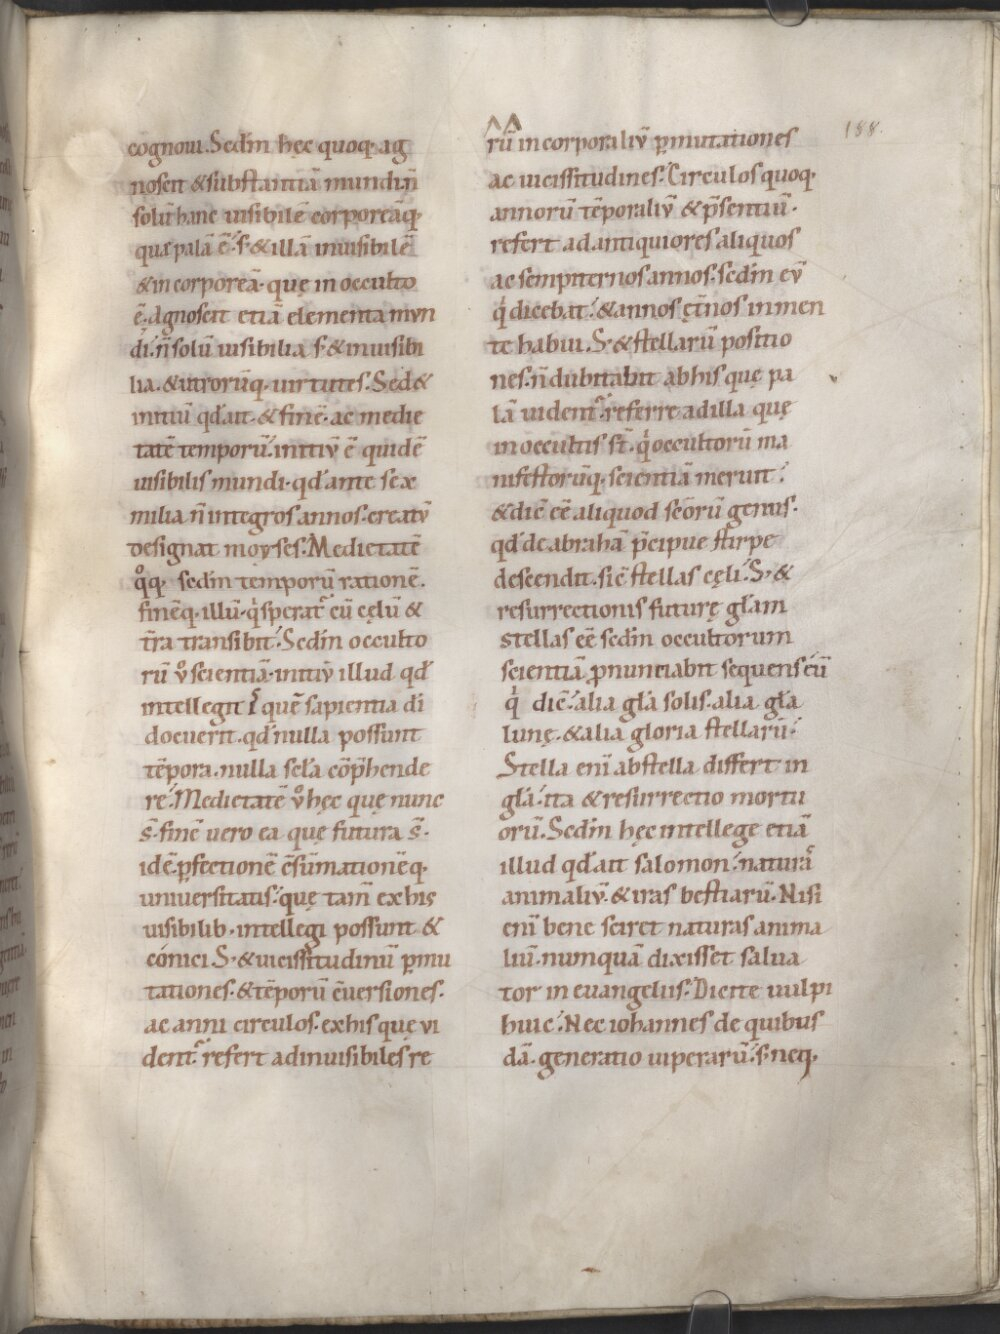 cognoui. Sedm̄ hęc quoq; ag
noscit & substantiā mundi. n̄
solū hanc uisibilē corporeāq;
quę palā ē. s; & illā inuisibilē
& incorporeā. quę in occulto
ē. Agnoscit etiā elementa mun
di. n̄ solū uisibilia s; & inuisibi
lia. & utrorūq; uirtutes. Sed &
initiū qđ ait. & finē. ac medie
tatē temporū. initiū ē quidē
uisibilis mundi. qđ ante sex
milia n̄ integros annos. creatū
designat moyses. Medietatē
q̊q; sedm̄ temporū rationē.
finēq; illū. q̇ speratr̄ cū cęlū &
tr̄a transibit. Sedm̄ occulto
rū v̊ scientiā. initiū illud qđ
intellegit is quē sapientia di
docuerit. qđ nulla possunt
tēpora. nulla sc̄la cōp̄hende
re. Medietatē v̊ hęc quę nunc
s̄. finē uero ea quę futura s̄.
idē. ꝑfectionē c̄sūmationēq;
uniuersitatis. quę tam̄ ex his
uisibilib; intellegi possunt &
cónici. S; & uicissitudinū ꝑmu
tationes. & tēporū c̄uersiones.
ac anni circulos. ex his quę vi
dentr̄ refert ad inuisibiles re
rū incorporaliū ꝑmutationes
ac uicissitudines. Circulos quoq;
annorū tēporaliū & p̄sentiū.
refert ad antiquiores aliquos
ac sempiternos annos. sedm̄ eū
q̇ dicebat. & annos ęt̄nos in men
te habui. S; & stellarū positio
nes. n̄ dubitabit ab his quę pa
lā uidentr̄ referre ad illa quę
in occultis st̄. q̇ occultorū ma
nifestorūq; scientiā meruit.
& dic̄ ee̅ aliquod sc̄orū genus.
qđ de abrahā p̄cipue stirpe
descendit. sic̄ stellas cęli. S; &
resurrectionis futurę gl̄am
stellas ee̅ sedm̄ occultorum
scientiā ꝓnunciabit sequens eū
q̇ dic̄. alia gl̄a solis. alia gl̄a
lunę. & alia gloria stellarū.
Stella eni̅ ab stella differt in
gl̄a. ita & resurrectio mortu
orū. Sedm̄ hęc intellege etiā
illud qđ ait salomon. naturā
animaliū. & iras bestiarū. Nisi
eni̅ bene sciret naturas anima
liū. numquā dixisset salua
tor in euangeliis. Dicite uulpi
huic. Nec iohannes de quibus
dā. generatio uiperarū. s; neq;
188.